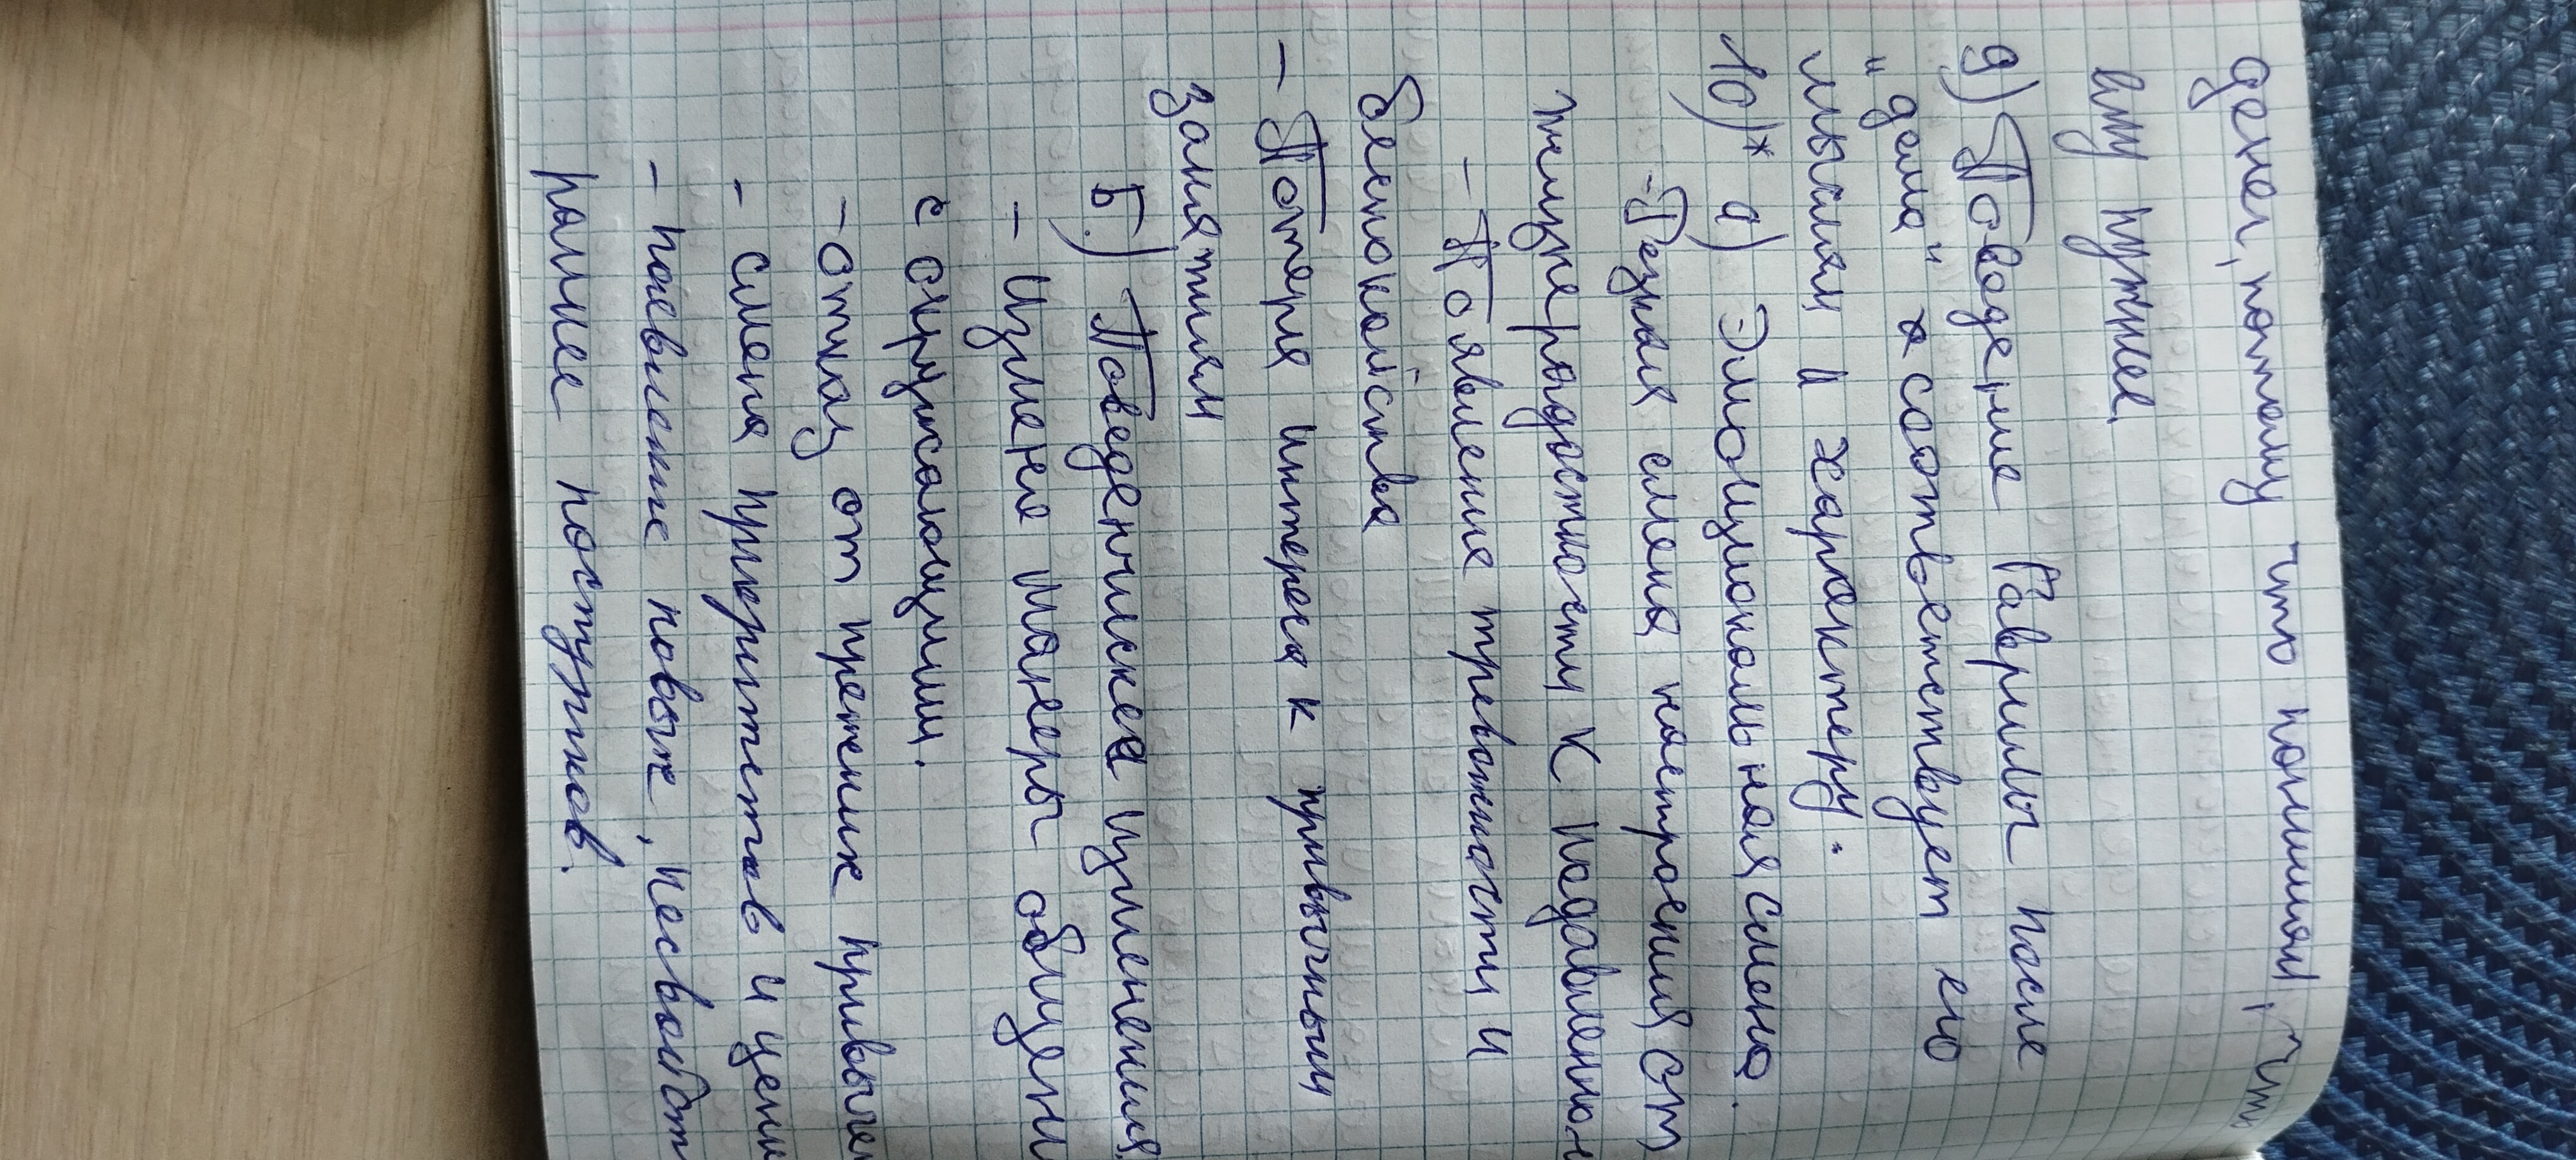 денег, потому что понимал, что
ему нужнее.
9) Поведение Гаврилы после
"дела" соответствует его
мыслям и характеру.
10)* а) Эмоциональная смена.
-Резкая смена настроения, от
жизнерадостности к подавленнос
- Появление тревожности и
беспокойства
- Потеря интереса к привычным
занятиям
Б.) Поведенческие изменения
- Изменение манеры общени
с окружающими.
- отказ от прежних привычек
- смена приоритетов и ценн
- появление новых, несвойст
ранее поступков.